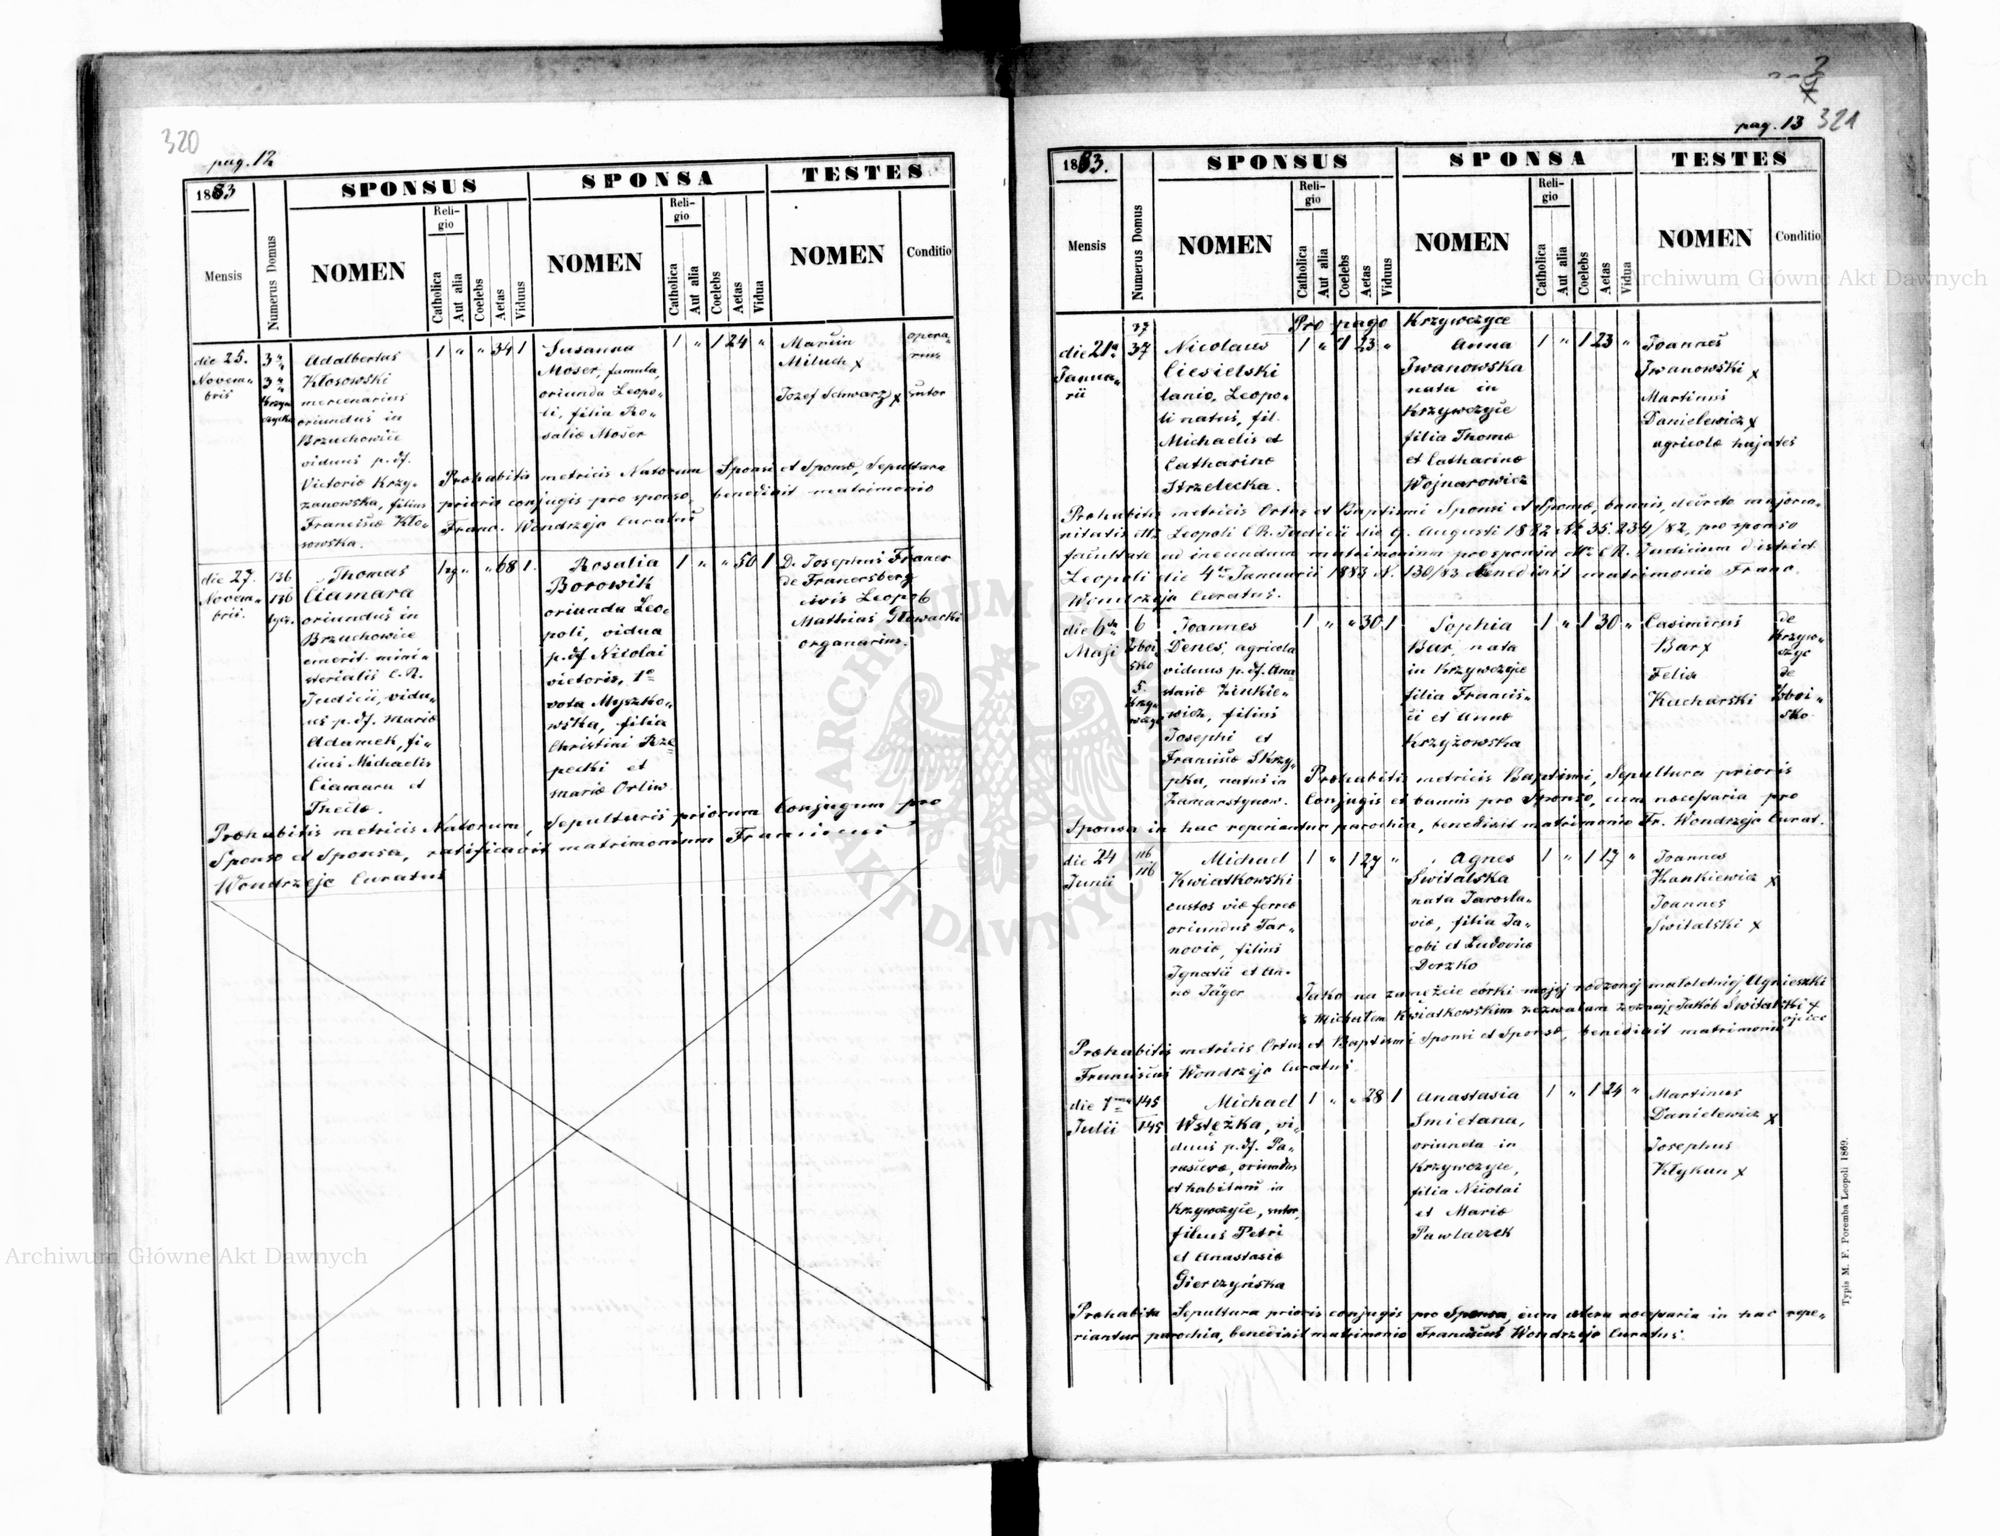 320
pag. 12
1883
SPONSUS
SPONSA
TESTES
Mensis
Numerus Domus
NOMEN
Religio
Catholica
Aut alia
Coelebs
Aetas
Viduus
NOMEN
Religio
Catholica
Aut alia
Coelebs
Aetas
Vidua
NOMEN
Conditio
die 25.
Novem-
bris
Adalbertus
Kłosowski
mercenarius
oriundus in
Brzuchowice
viduus p. df.
Victoriæ Krzy-
żanowska, filius
Franciscæ Kło-
sowska.
1 " " 34 1
Susanna
Moser, famula,
oriunda Leopo-
li, filia Ro-
saliæ Moser
1 " 1 24 "
Marcin
Miluch x
opera-
rius
Jozef Schwarz x
sutor
Præhabitis metricis Natorum Sponsi et Sponsæ, Sepultura
prioris conjugis pro sponso, benedixit matrimonio
Franc. Wondrzejc Curatus
die 27.
Novem-
bris.
136
136
Thomas
Ciamara
oriundus in
Brzuchowice
emerit. mini-
sterialis C. R.
Judicii, vidu-
us p. df. Mariæ
Adamek, fi-
lius Michaelis
Ciamara et
Theclæ.
" " 68 1
Rosalia
Borowik
oriunda Leo-
poli, vidua
p. df. Nicolai
victoris, 1º
voto Myszko-
wska, filia
Christini Rze-
pecki et
Mariæ Orliw
1 " " 50 1
D. Josephus Franer
de Franersberg
civis Leopol.
Mathias Głowacki
organarius.
Præhabitis metricis Natorum, Sepulturis priorum Conjugum pro
Sponso et Sponsa, ratificavit matrimonium Franciscus
Wondrzejc Curatus
pag. 13
321
1883.
SPONSUS
SPONSA
TESTES
Mensis
Numerus Domus
NOMEN
Religio
Catholica
Aut alia
Coelebs
Aetas
Viduus
NOMEN
Religio
Catholica
Aut alia
Coelebs
Aetas
Vidua
NOMEN
Conditio
Pro pago Krzywczyce
die 21ª
Janua-
rii
37
37
Nicolaus
Ciesielski
lanio, Leopo-
li natus, fil.
Michaelis et
Catharinæ
Strzelecka.
1 " 1 23 "
Anna
Iwanowska
nata in
Krzywczyce
filia Thomæ
et Catharinæ
Wojnarowicz
1 " 1 23 "
Joannes
Iwanowski x
Martinus
Danielewicz x
agricolæ hujates
Præhabitis metricis Ortus et Baptismi Sponsi et Sponsæ, bannis, decreto majoren-
nitatis Leopoli C. R. Judicii die 9. Augusti 1882 N. 35.234/82, pro sponso
facultate ad ineundum matrimonium pro sponsa C. R. Judicium district.
Leopoli die 4ª Januarii 1883 N. 130/83 benedixit matrimonio Franc.
Wondrzejc Curatus.
die 6ta
Maji
6
Zboi-
sko
5.
Krzy-
wczyc
Joannes
Denes, agricola
viduus p. df. Ana-
stasiæ Zinkie-
wicz, filius
Josephi et
Franciscæ Skrzy-
pka, natus in
Zamarstynow.
1 " " 30 1
Sophia
Bar, nata
in Krzywczyce
filia Francis-
ci et Annæ
Krzyżowska
1 " 1 30 "
Casimirus
Bar x
Felix
Kucharski
de
Krzyw-
czyc
de
Zboi-
sko
Præhabitis metricis Baptismi, Sepultura prioris
Conjugis et bannis pro Sponso, cum necessaria pro
Sponsa in hac reperiantur parochia, benedixit matrimonio Fr. Wondrzejc Curat.
die 24
Junii
116
116
Michael
Kwiatkowski
custos viæ ferreæ
oriundus Tar-
noviæ, filius
Ignatii et An-
næ Jäger
1 " 1 27 "
Agnes
Świtalska
nata Jarosla-
viæ, filia Ja-
cobi et Ludovicæ
Derzko
1 " 1 17 "
Joannes
Hankiewicz x
Joannes
Świtalski x
Jako na zamęzcie córki mojej rodzonej małoletniej Agnieszki
z Michałem Kwiatkowskim zezwalam zeznaję Jakób Świtalski x
ojciec
Præhabitis metricis Ortus et Baptismi Sponsi et Sponsæ, benedixit matrimonio
Franciscus Wondrzejc Curatus.
die 1ma
Julii
145
145
Michael
Wstężka, vi-
duus p. df. Pa-
rascevæ, oriundus
et habitans in
Krzywczyce, sutor,
filius Petri
et Anastasiæ
Gierczyńska
1 " " 28 1
Anastasia
Śmietana,
oriunda in
Krzywczyce,
filia Nicolai
et Mariæ
Pawlaczek
1 " 1 24 "
Martinus
Danielewicz x
Josephus
Kłykun x
Præhabita Sepultura prioris conjugis pro Sponso, cum cetera necessaria in hac repe-
riantur parochia, benedixit matrimonio Franciscus Wondrzejc Curatus.
Typis M. F. Poremba Leopoli 1869.
Archiwum Główne Akt Dawnych
Archiwum Główne Akt Dawnych
ARCHIWUM GŁÓWNE AKT DAWNYCH